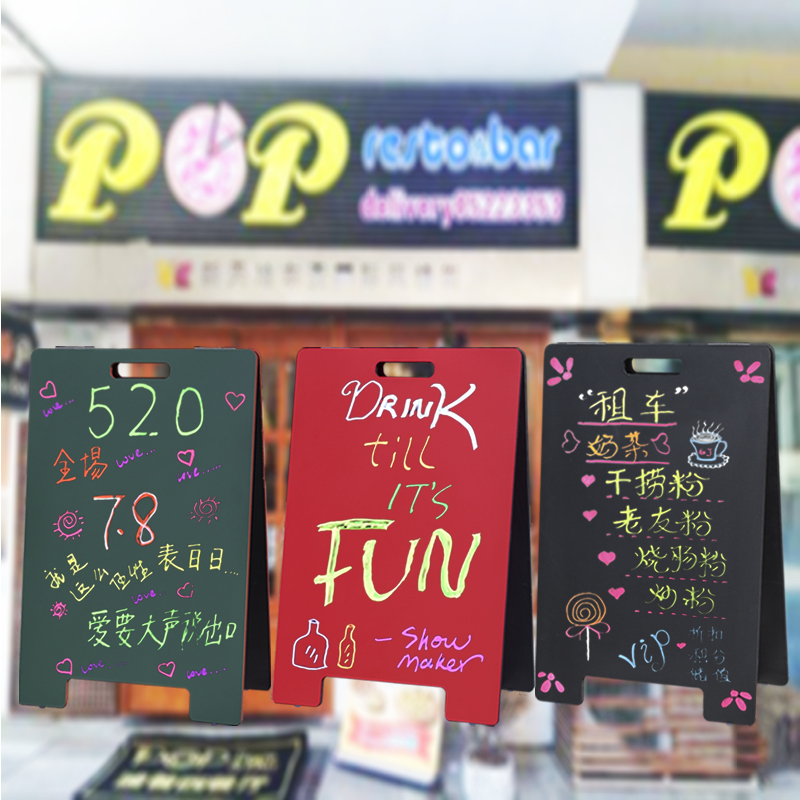 POP
resto&bar
delivery
P
520
love...
全場
love...
love....
7.8
我是
这么任性
表白日...
love...
爱要大声说出口
love...
love....
DRINK
till
IT'S
FUN
- Show
maker
"租车"
奶茶
干捞粉
老友粉
炒粉
VIP
折扣
积分
POP